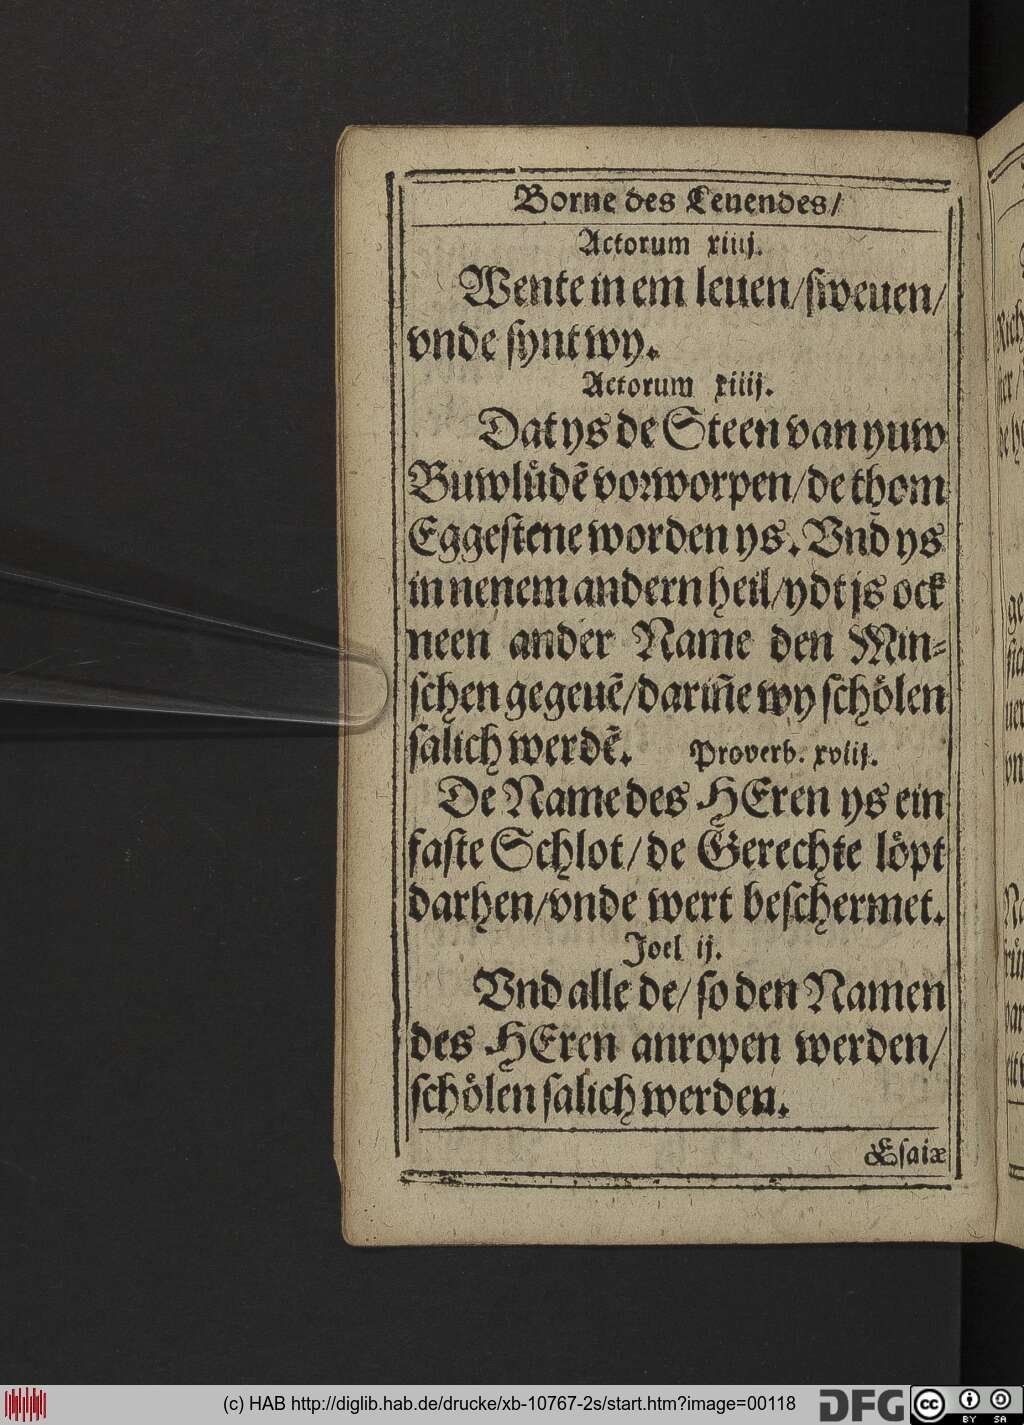 Borne des Leuendes/
Actorum xiiij.
Wente in em leuen/sweuen/
vnde synt wy.
Actorum xiiij.
Dat ys de Steen van yuw
Buwlu̍dẽ vorworpen/de thom
Eggestene worden ys. Vnd ys
in nenem andern heil/ydt js ock
neen ander Name den Min⸗
schen gegeuẽ/darin̄e wy schoͤlen
salich werdẽ. Proverb. xviij.
De Name des HEren ys ein
faste Schlot/de Gerechte loͤpt
darhen/vnde wert beschermet.
Joel ij.
Vnd alle de/so den Namen
des HEren anropen werden/
schoͤlen salich werden.
Esaiæ
(c) HAB http://diglib.hab.de/drucke/xb-10767-2s/start.htm?image=00118
DFG
cc
BY SA